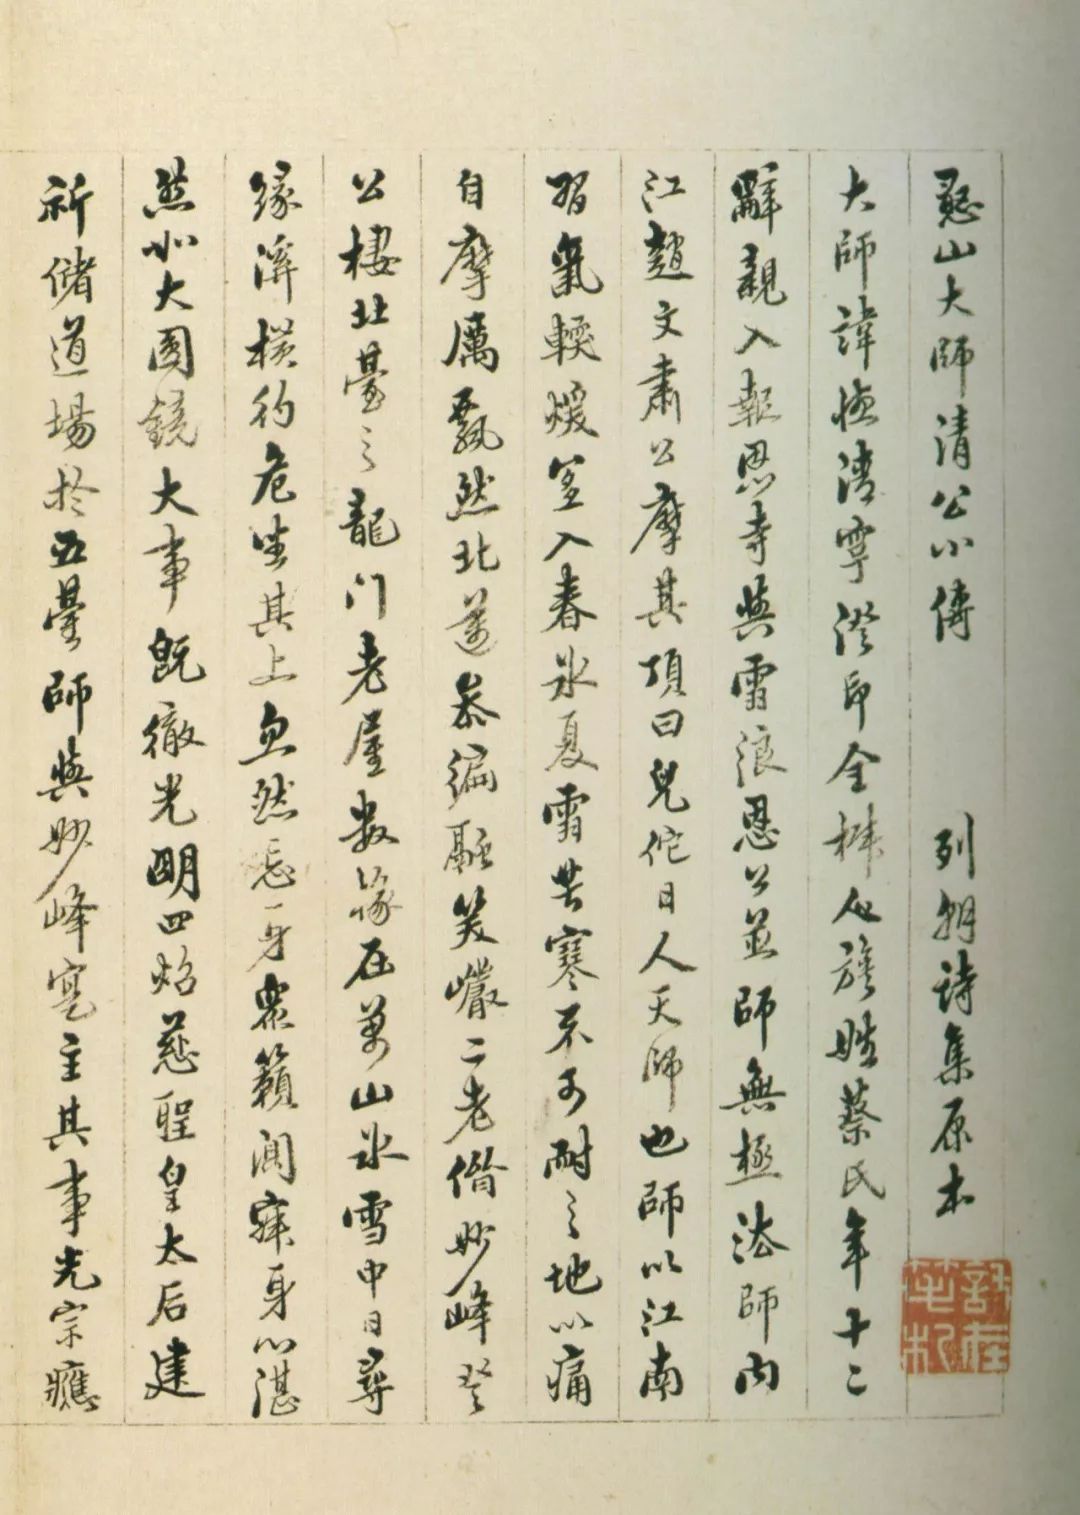 憨山大師清公小傳 列朝詩集原本
大師諱德清字澄印全椒人族姓蔡氏年十二
辭親入報恩寺與雪浪恩公並師無極法師內
江趙文肅公摩其頂曰兒佗日人天師也師以江南
習氣輭煖宜入春冰夏雪苦寒不可耐之地以痛
自摩厲飄然北邁參徧融笑巖二老偕妙峰登
公棲北臺之龍門老屋數椽在萬山冰雪中日尋
緣溪橫彴危坐其上忽然忘身衆籟闃寂身心湛
然如大圓鏡大事既徹光明四炤慈聖皇太后建
祈儲道場於五臺師與妙峰寔主其事光宗應